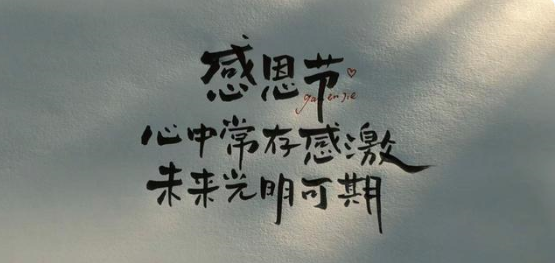 感恩节
gan en jie
心中常存感激
未来光明可期